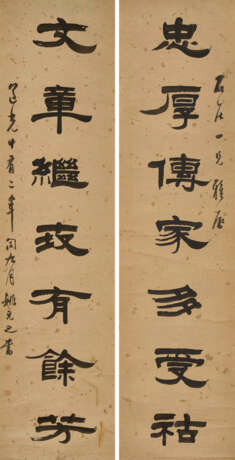 忠厚傳家多受祜
一兄雅屬
文章繼武有餘芳
道光十有二年閏九月姚元之書